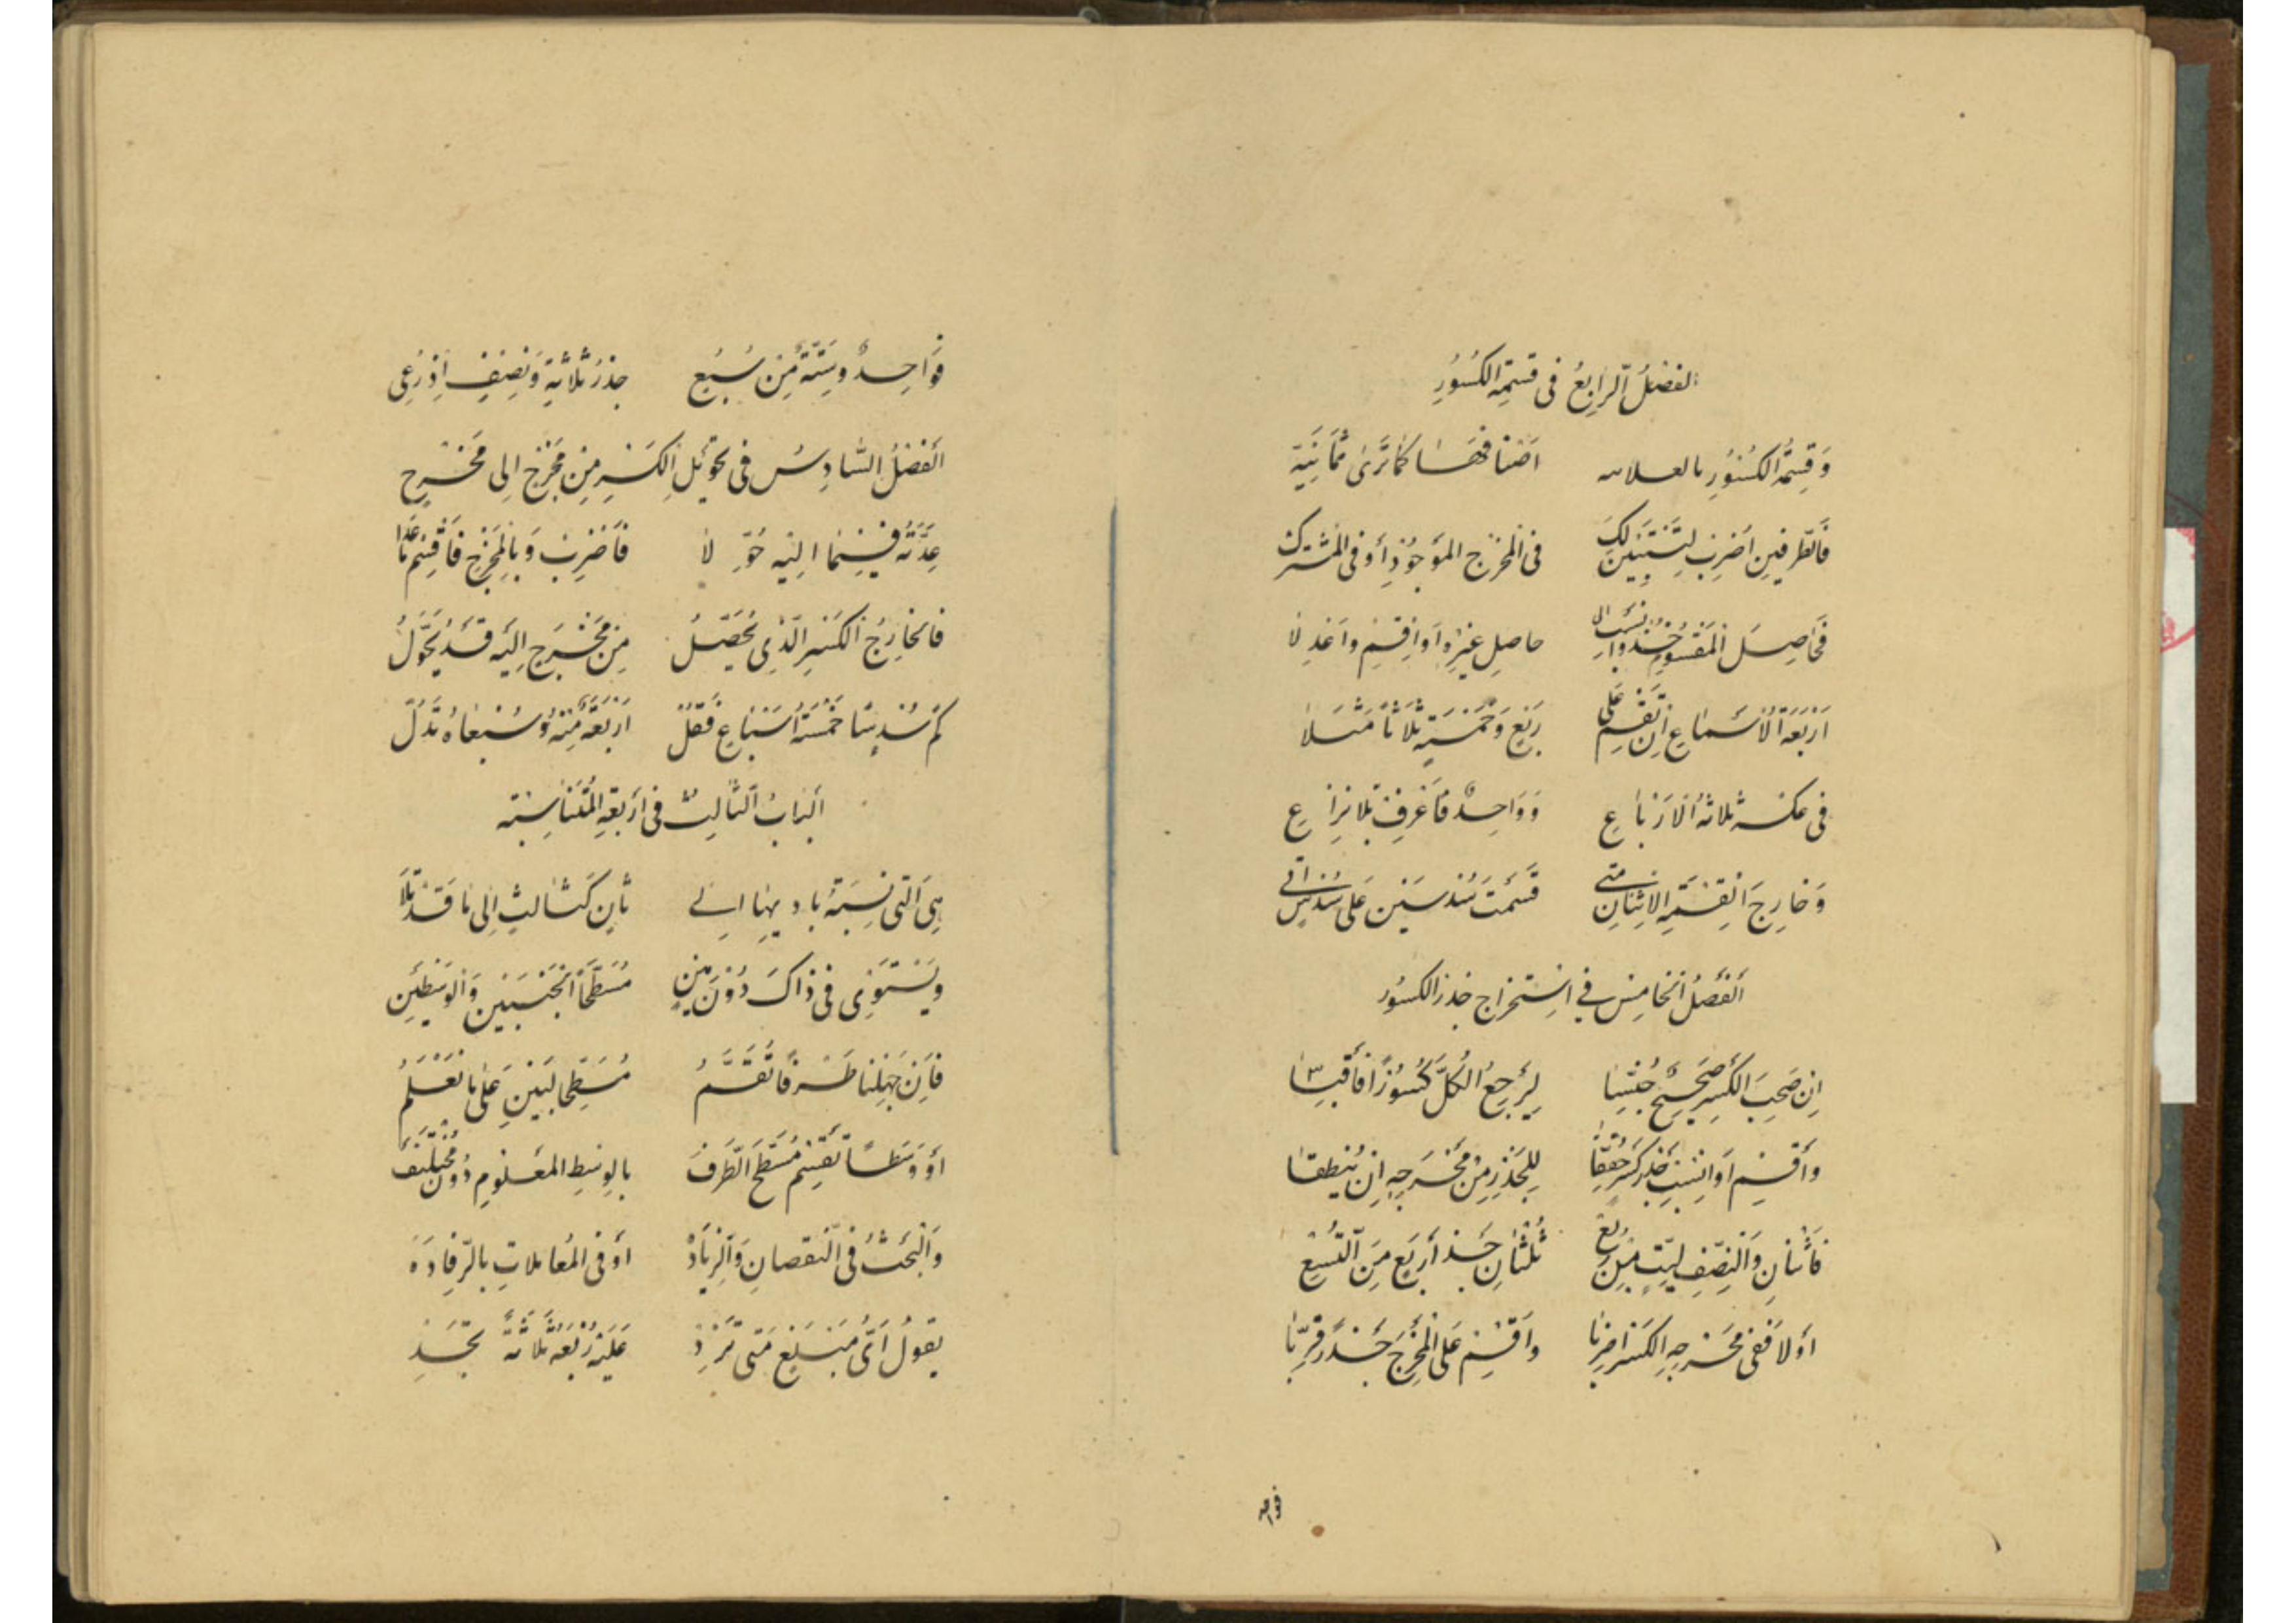 الفصلُ الرابعُ في قسمةِ الكُسُورِ
وَقِسمَةُ الكُسُورِ يا لعلامه اصنافها كما ترى ثَمَانِيَة
فالطرفينِ اضرب لِتَستَبينَ لك في المخرج الموجودِ أو في المشترك
فحاصِلَ المقسومِ خُذ وانسب الى حاصلِ غيرِهِ أو اقسِم واعدِلا
اَربَعَةُ الأسباعِ ان تقسم على ربع وخمسة ثلاثا مثلا
في عكسه ثلاثةُ الأرباعِ وواحدٌ فاعرف بلا نزاعِ
وخارج القسمة الاثنان متى قسمت سُدسين على سدس اتى
الفصلُ الخامس في استخراج جذر الكسور
إن صحب الكسرَ صحيحٌ جُنِّسا ليرجعُ الكلّ كسورًا فاقبسا
واقسِم أو انسب جذر كسر حققا للجذر من مخرجه إن يُنطقا
فاثنان والنصف لستٍ من ربع ثلثانِ جذر أربع من التسع
أولا ففي مخرجه الكسر اضربا واقسم على المخرج جذر قربا
فواحد
فواحدٌ وستةٌ من سُبُع جذر ثلاثةٍ ونصفٍ اذ رُعِي
الفصلُ السّادس في تحويلِ الكسرِ من مخرجٍ الى مخرج
عدّتَهُ فيما اليه حُوِّلا فاضرب وبالمخرج فاقسم ما عدا
فالخارجُ الكسر الذي يُحصّلُ من مخرج إليه قد يُحَوَّلُ
كم سُدسًا خمسةُ أسباعٍ فقل اربعةٌ منهُ وسُبعاهُ تدُلّ
البابُ الثالثُ في أربعةِ المتناسبة
هي التي نسبةُ باديها الى ثانٍ كثالثٍ الى ما قد تلا
ويستوي في ذاك دون مين مُسطّحا الجنبين والوسطين
فإن جهلنا طرفًا تُقَسَّمُ مسطّحا لبين على ما نعلمُ
أو وسطًا تقسم مسطح الطرف بالوسط المعلوم دون مختلف
والبحثُ في النقصانِ والزيادة أو في المعاملاتِ بالرّفادَة
يقولُ أيُّ مبلغ متى تزد عليه ربعه ثلاثة تجد